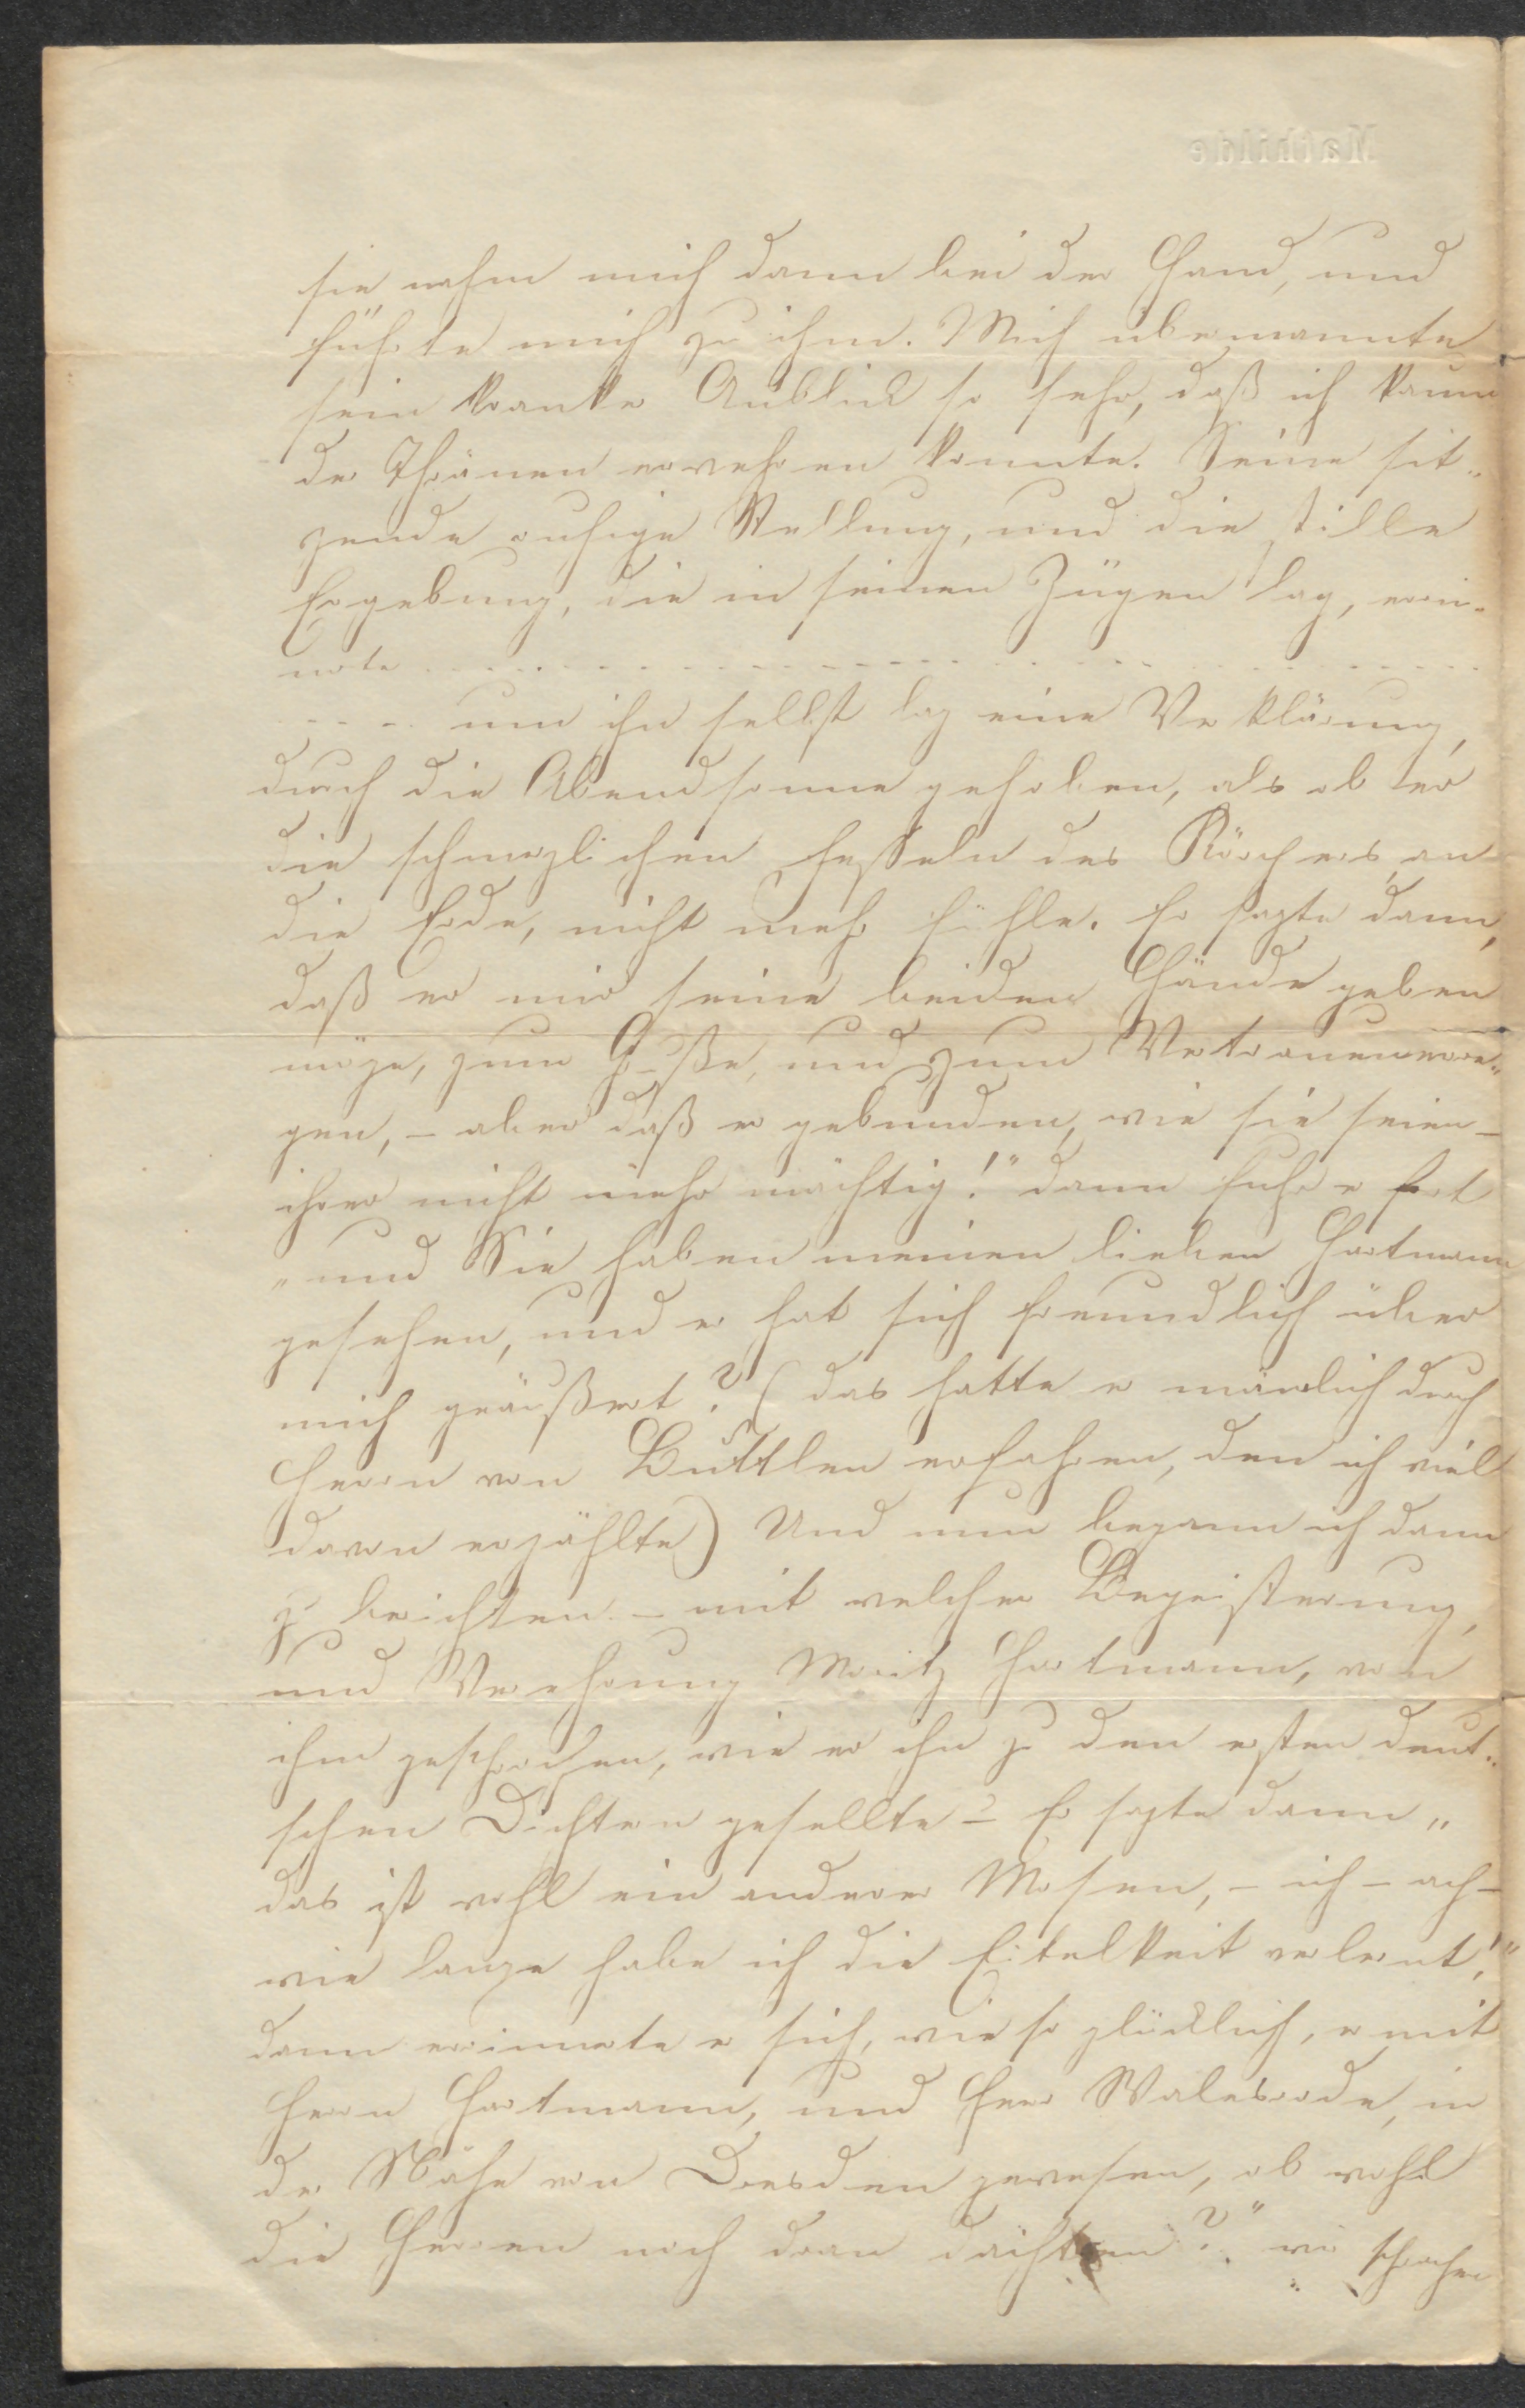 Mathilde
sie nahm mich dann bei der Hand, und
führte mich zu ihm. Mich übermannte
sein kranker Anblick so sehr, daß ich kaum
der Thränen erwehren konnte. Seine sit„
zende ruhige Stellung, und die stille
Ergebung, die in seinen Zügen lag, erin-
nerte - - - - - - - - - - - - - - - - - - - - - -
- - - - um ihn selbst lag eine Verklärung,
durch die Abendsonne gehoben, als ob er
die schmerzlichen Fesseln des Körpers, an
die Erde, nicht mehr fühle. Er sagte dann,
daß er mir seine beiden Hände geben
möge, zum Gruße, und zum
gen, – aber daß er gebunden, wie sie seien –
ihrer nicht mehr mächtig!“ dann fuhr er fort
„und Sie haben meinen lieben Hartmann
gesehen, und er hat sich freundlich über
mich geäußert? (das hatte er nämlich durch
Herrn von Buttlen erfahren, den ich viel
davon erzählte) Und nun begann ich dann
zu berichten – mit welcher Begeisterung,
und Verehrung Moritz Hartmann, von
ihm gesprochen, wie er ihn zu den ersten deut„
schen Dichtern gesellte – Er sagte dann „
das ist wohl ein anderer Mosen, – ich – ach –
wie lange habe ich die Eitelkeit verlernt!“
dann erinnerte er sich, wie so glücklich, er mit
Herrn Hartmann, und Herr Walesrode, in
der Nähe von Dresden gewesen, ob wohl
die Herren noch dran dächten?“ wir sprachen